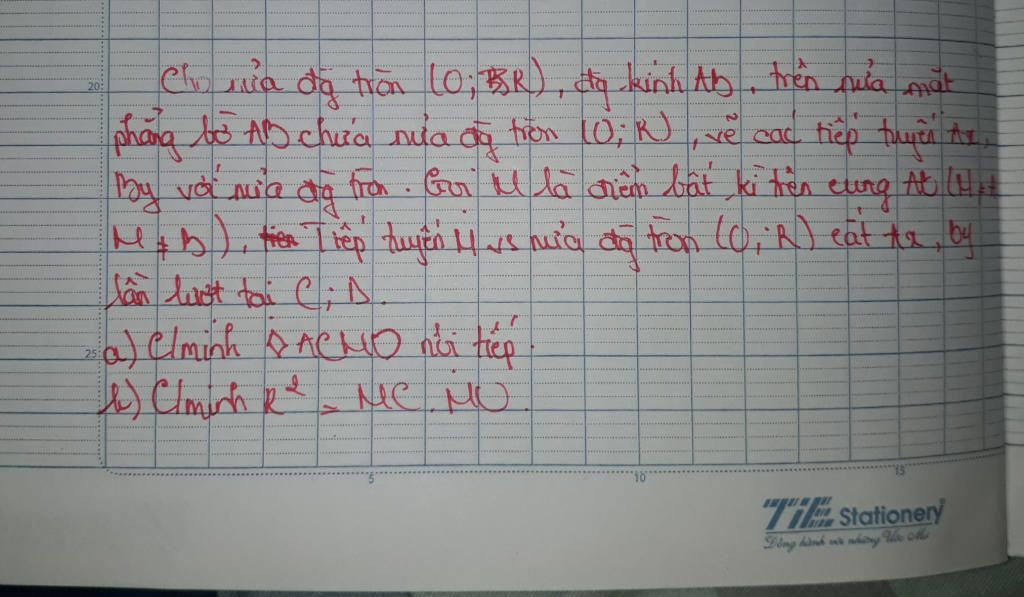 20
Cho nửa đg tròn (O; R), đg kính AB, trên nửa mặt
phẳng bờ AB chứa nửa đg tròn (O; R), vẽ các tiếp tuyến Ax,
By với nửa đg tròn. Gọi M là điểm bất kì trên cung AB (M ≠ A
M ≠ B), Tiếp tuyến M vs nửa đg tròn (O; R) cắt Ax, by
lần lượt tại C; D.
25 a) C/minh ◊ ACMO nội tiếp.
b) C/minh R² = MC. MD.
5 10 15
TiE Stationery
Đồng hành với những Ước Mơ